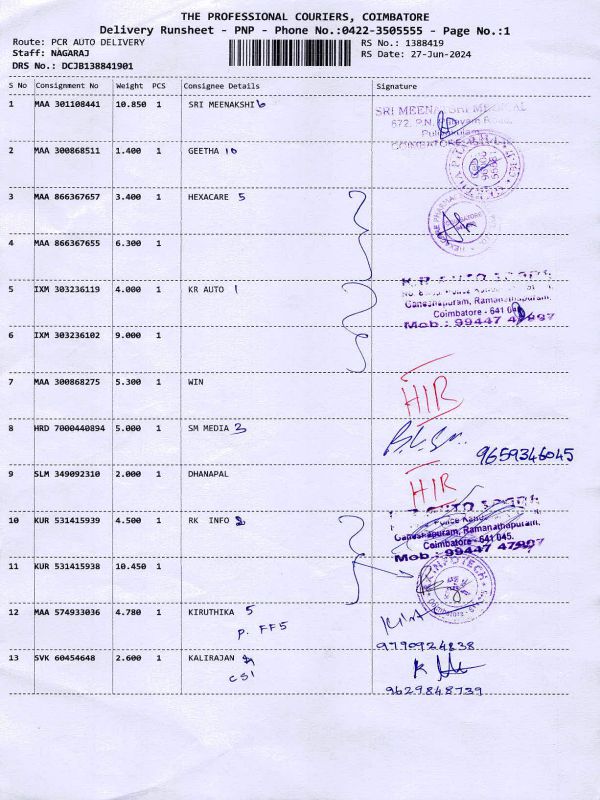 THE PROFESSIONAL COURIERS, COIMBATORE
Delivery Runsheet - PNP - Phone No.:0422-3505555 - Page No.:1
Route: PCR AUTO DELIVERY RS No.: 1388419
Staff: NAGARAJ RS Date: 27-Jun-2024
DRS No.: DCJB138841901
S No Consignment No Weight PCS Consignee Details Signature
1 MAA 301108441 10.850 1 SRI MEENAKSHI 6
SRI MEENAKSHI MEDICAL
672, P.N.
COIMBATORE
2 MAA 300868511 1.400 1 GEETHA 10
3 MAA 866367657 3.400 1 HEXACARE 5
4 MAA 866367655 6.300 1
5 IXM 303236119 4.000 1 KR AUTO 1
Ganeshapuram, Ramanathapuram,
Coimbatore - 641 045
Mob : 99447 47997
6 IXM 303236102 9.000 1
7 MAA 300868275 5.300 1 WIN HIR
8 HRD 7000440894 5.000 1 SM MEDIA 3
9659346045
9 SLM 349092310 2.000 1 DHANAPAL HIR
10 KUR 531415939 4.500 1 RK INFO 2
Ganeshapuram, Ramanathapuram,
Coimbatore - 641 045.
Mob : 99447 47997
11 KUR 531415938 10.450 1
INFOTECH
12 MAA 574933036 4.780 1 KIRUTHIKA 5
P. FF5
9790924838
13 SVK 60454648 2.600 1 KALIRAJAN
CSI
9629848739